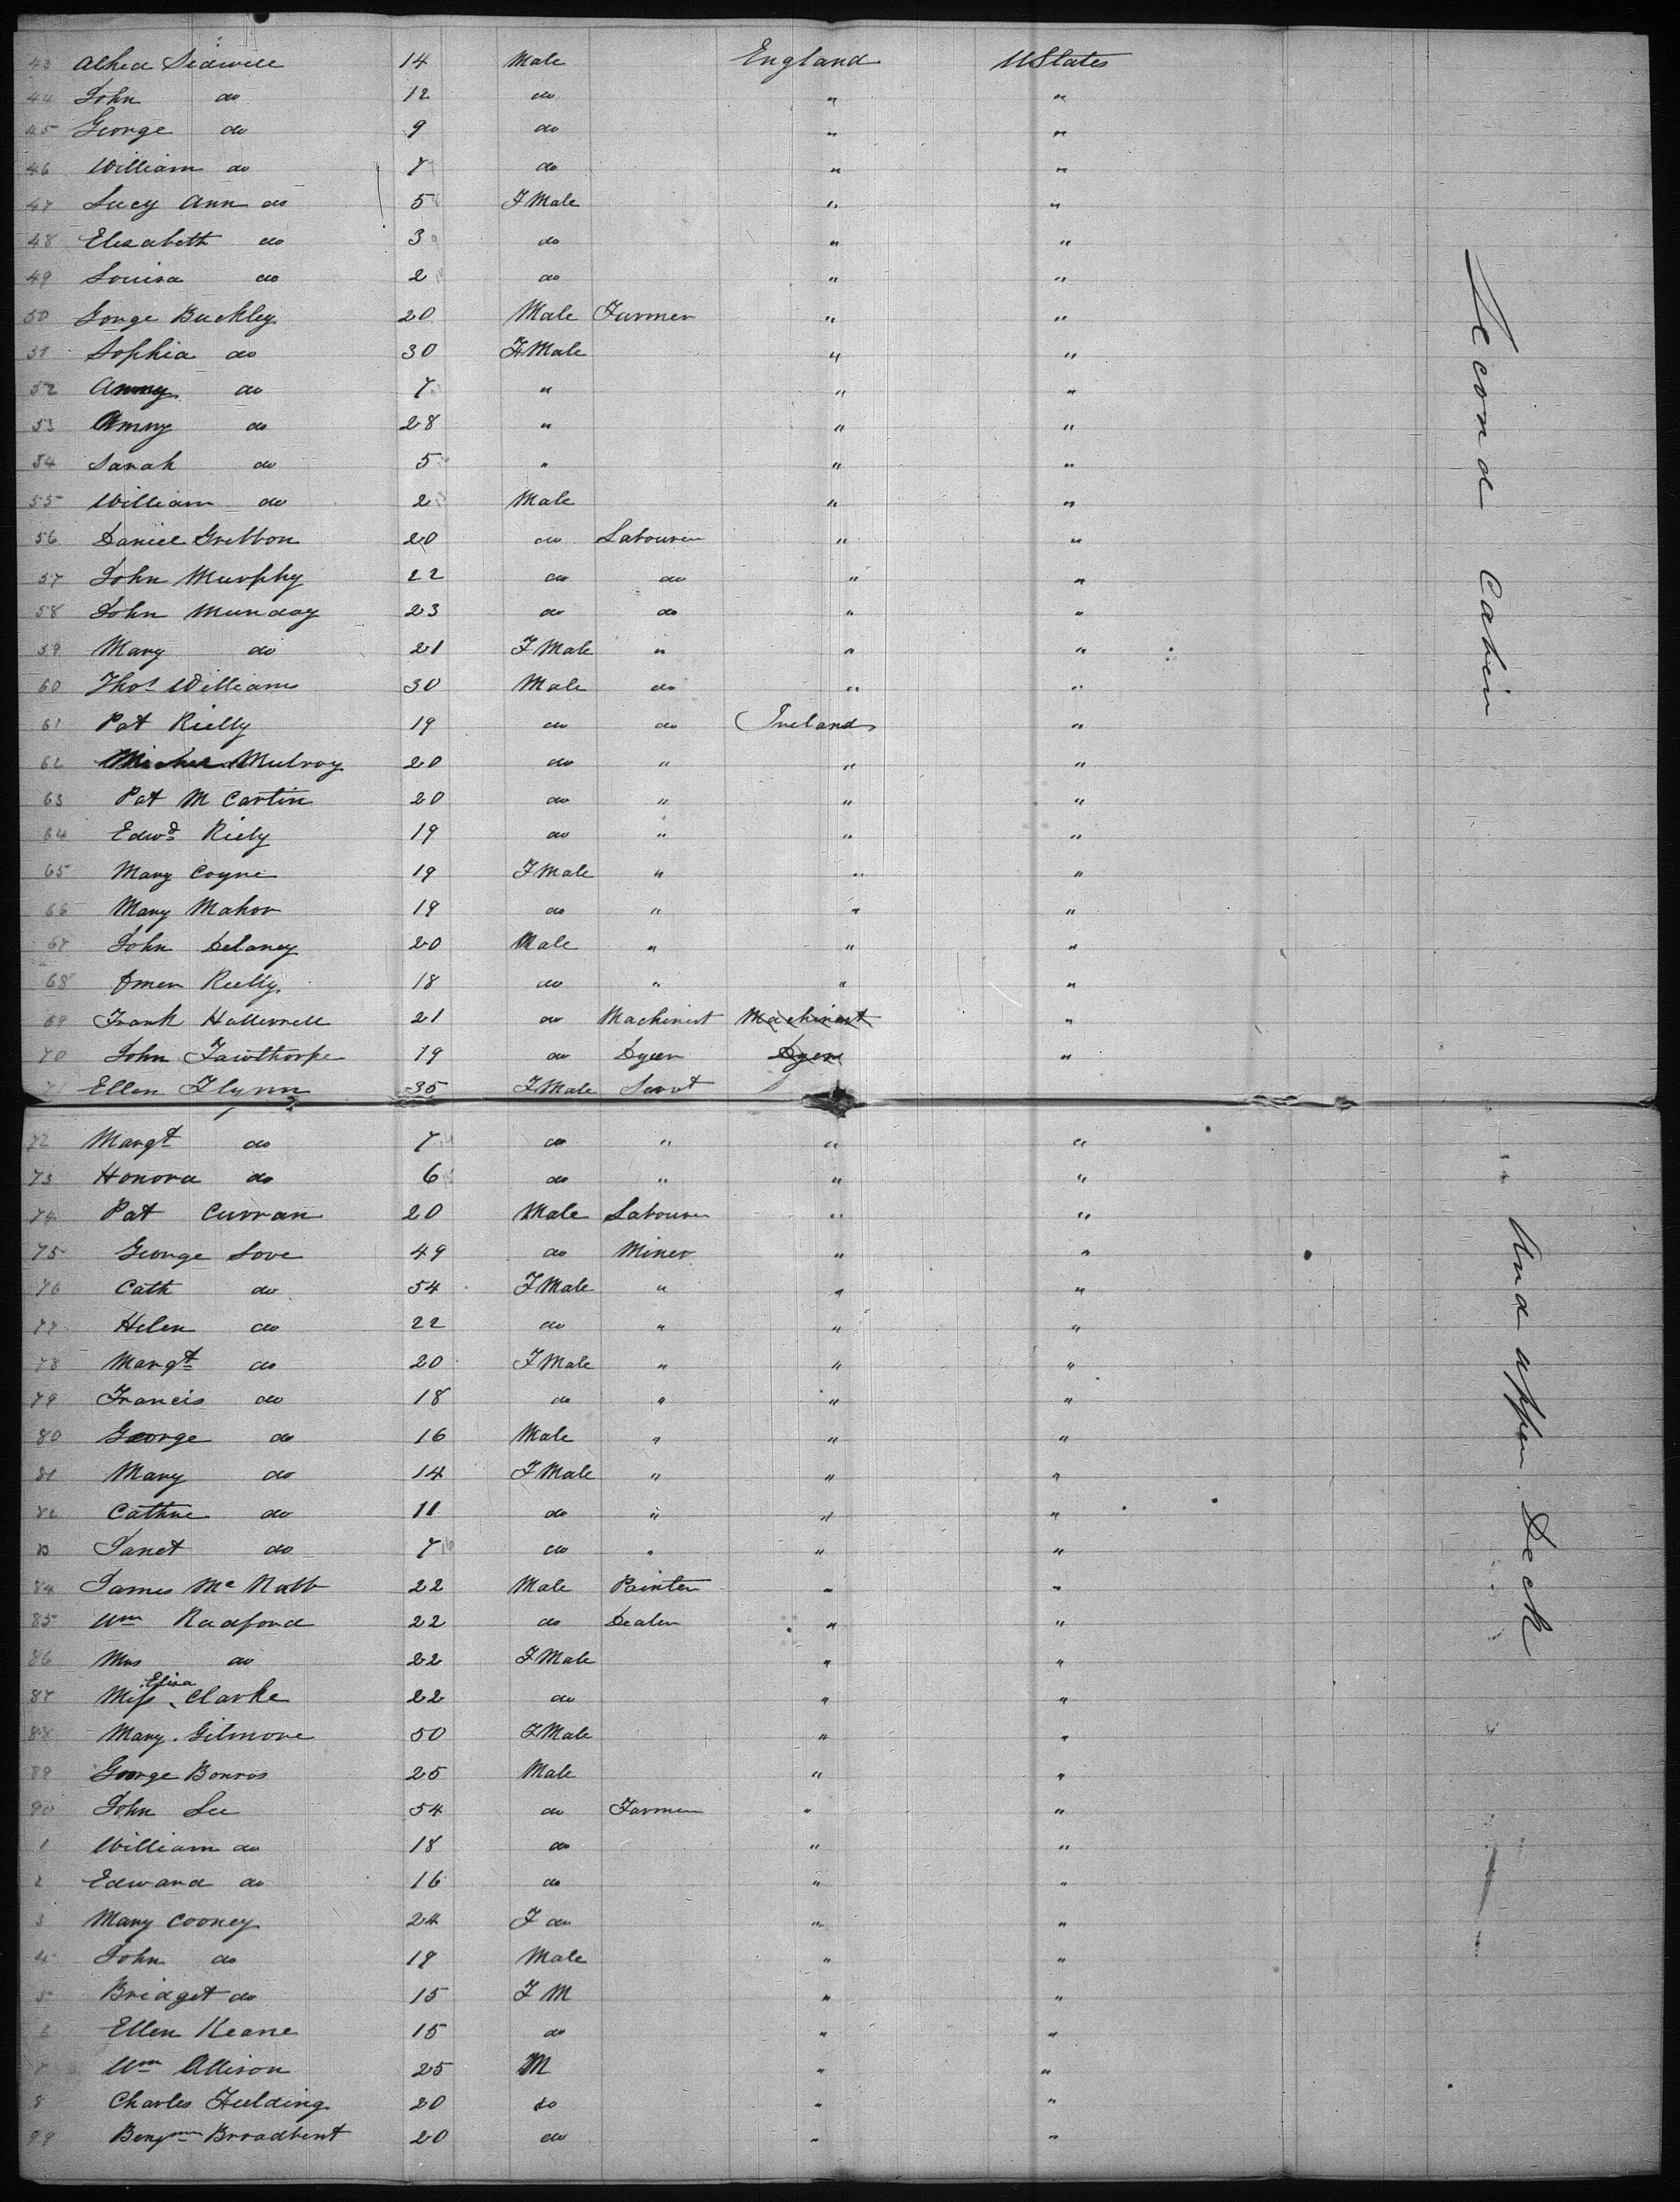 43 Alfred Sidwell 14 Male England U States
44 John do 12 do " "
45 George do 9 do " "
46 William do 7 do " "
47 Lucy Ann do 5 F Male " "
48 Elizabeth do 3 do " "
49 Louisa do 2 do " "
50 Gorge Buckley 20 Male Farmer " "
51 Sophia do 30 F Male " "
52 Amny do 7 " " "
53 Amny do 28 " " "
54 Sarah do 5 " " "
55 William do 2 Male " "
56 Daniel Gribbon 20 do Labourer " "
57 John Murphy 22 do do " "
58 John Munday 23 do do " "
59 Mary do 21 F Male " " "
60 Thos Williams 30 Male do " "
61 Pat Rielly 19 do do Ireland "
62 Mulroy 20 do " " "
63 Pat M Cartin 20 do " " "
64 Edwd Riely 19 do " " "
65 Mary Coyne 19 F Male " " "
66 Mary Mahon 19 do " " "
67 John Delaney 20 Male " " "
68 Rielly 18 do " " "
69 Frank Halliwell 21 do Machinist Machinist "
70 John Fawthorpe 19 do Dyer Dyer "
71 Ellen Flynn 35 F Male Servt
72 Margt do 7 do " " "
73 Honora do 6 do " " "
74 Pat Curran 20 Male Labourer " "
75 George Love 49 do Miner " "
76 Cath do 54 F Male " " "
77 Helen do 22 do " " "
78 Margt do 20 F Male " " "
79 Francis do 18 do " " "
80 George do 16 Male " " "
81 Mary do 14 F Male " " "
82 Cathne do 11 do " " "
83 Janet do 7 do " " "
84 James Mc Nabb 22 Male Painter " "
85 Wm Radford 22 do Dealer " "
86 Mrs do 22 F Male " "
87 Miss Eliza Clarke 22 do " "
88 Mary Gilmore 50 F Male " "
89 George Bonras 25 Male " "
90 John Lee 54 do Farmer " "
1 William do 18 do " "
2 Edward do 16 do " "
3 Mary Cooney 24 F do " "
4 John do 19 Male " "
5 Bridget do 15 F M " "
6 Ellen Keane 15 do " "
7 Wm Allison 25 M " "
8 Charles Fielding 20 do " "
99 Benjmn Broadbent 20 do " "
Second Cabin
And upper Deck